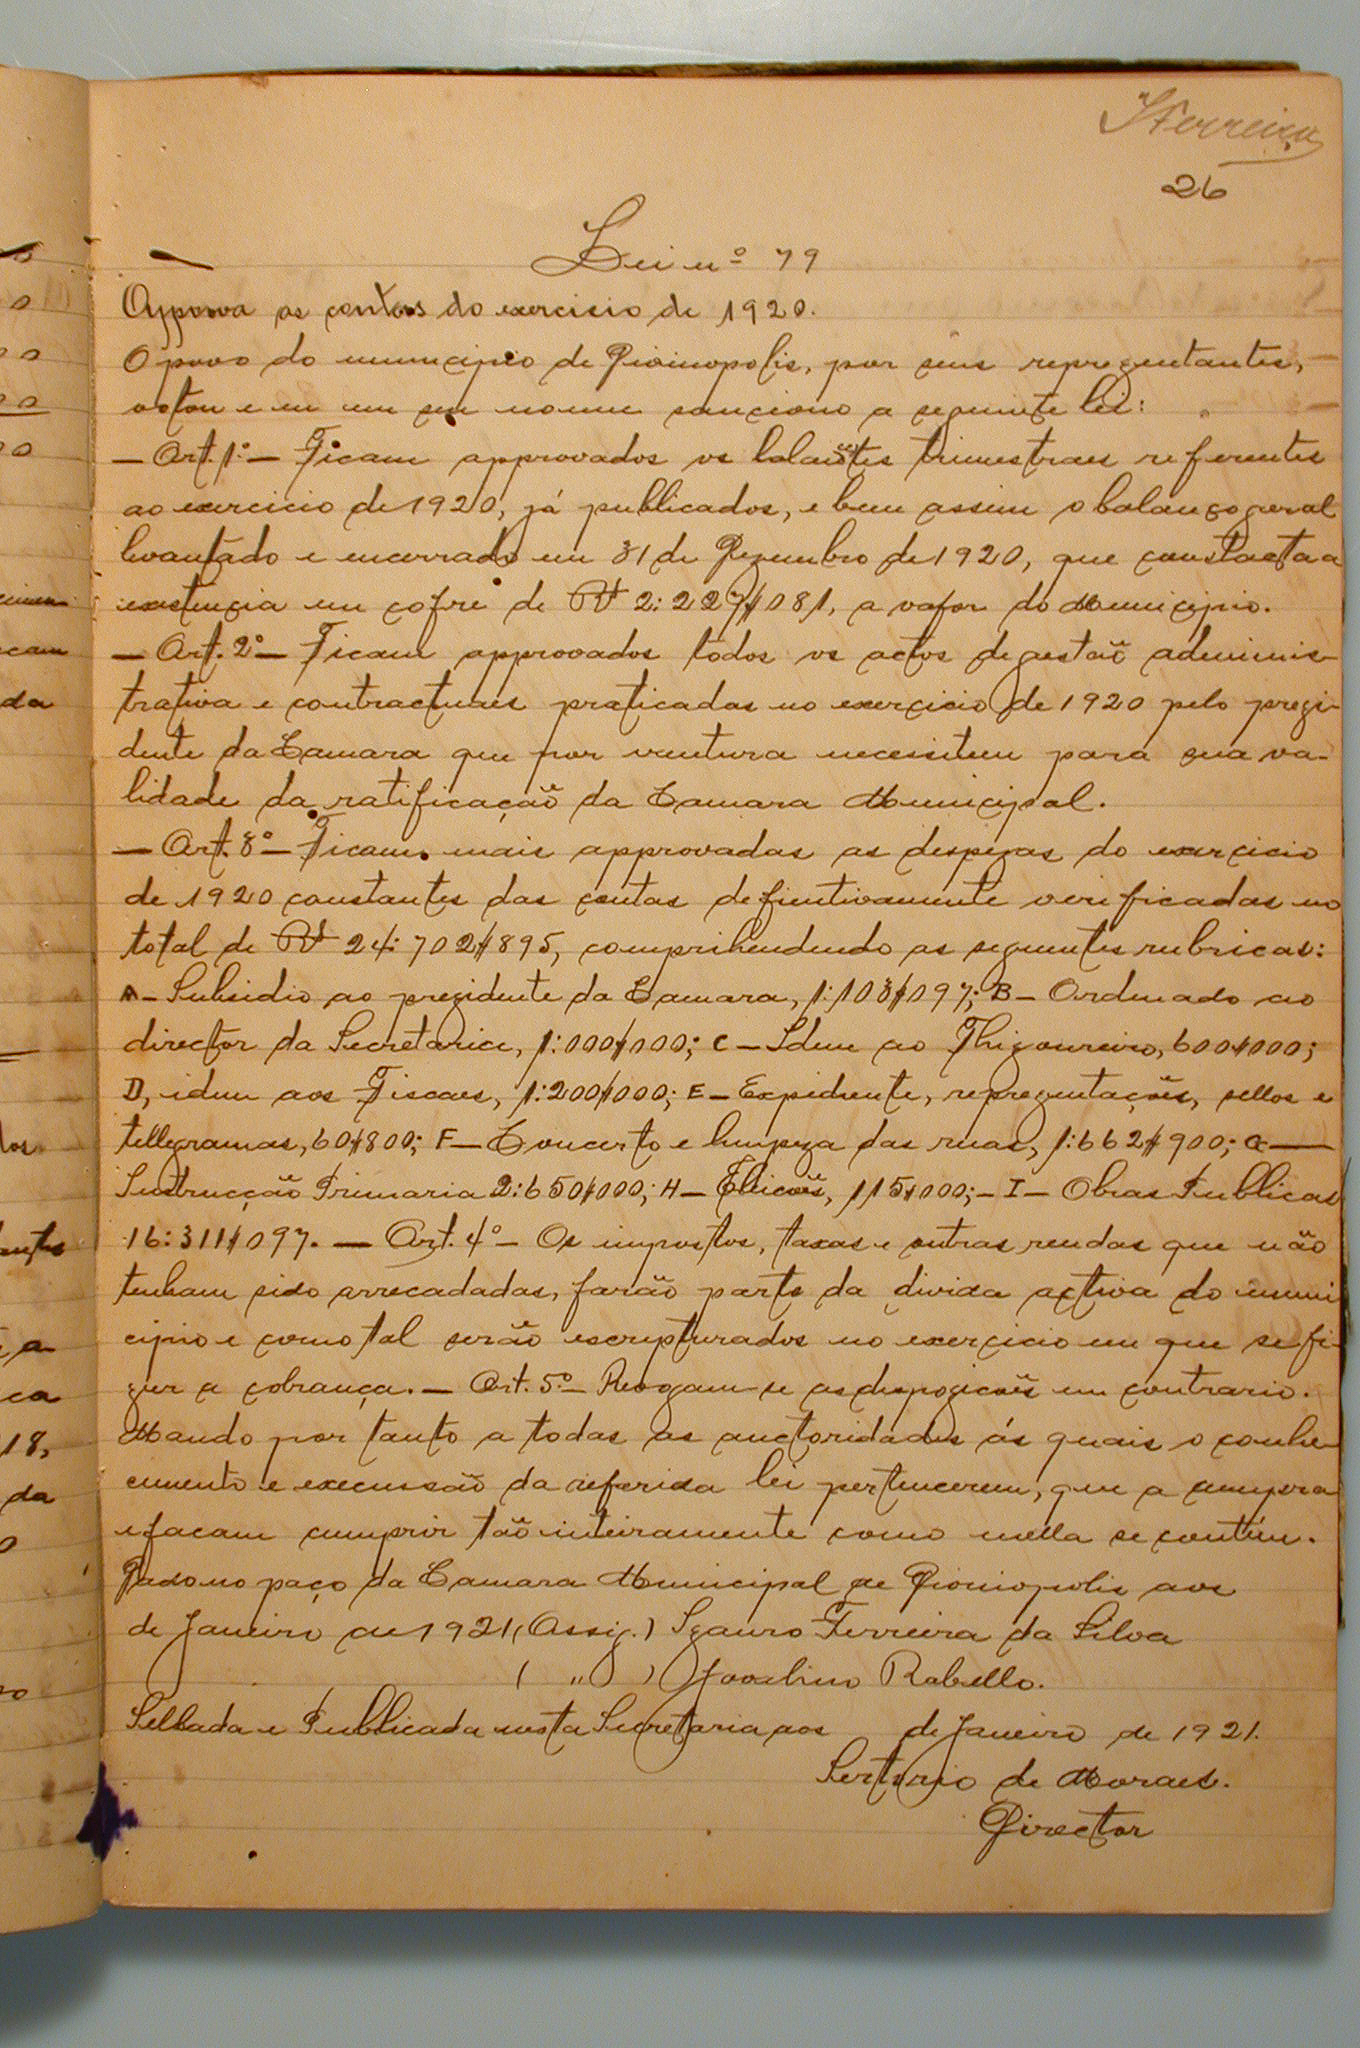 JFerreira
26
Lei nº 79
Approva as contas do exercicio de 1920.
O povo do municipio de Divinopolis, por seus reprezentantes,
votou e eu em seu nome sanciono a seguinte lei:
— Art. 1º — Ficam approvados os balancêtes trimestraes referentes
ao exercicio de 1920, já publicados, e bem assim o balanço geral
levantado e encerrado em 31 de Dezembro de 1920, que constacta a
existencia em cofre de Rs 2:227$081, a vafor do Municipio.
— Art. 2º — Ficam approvados todos os actos de gestaõ adminis-
trativa e contractuaes praticadas no exercicio de 1920 pelo prezi-
dente da Camara que por ventura necessitem para sua va-
lidade da ratificaçaõ da Camara Municipal.
— Art. 3º — Ficam mais approvadas as despezas do exercicio
de 1920 constantes das contas definitivamente verificadas no
total de Rs 24:702$895, comprihendendo as seguentes rubricas:
A — Subsidio ao prezidente da Camara, 1:103$097; B — Ordenado ao
director da Secretaria, 1:000$000; C — Idem ao Thizoureiro, 600$000;
D, idem aos Fiscaes, 1:200$000; E — Expediente, reprezentações, sellos e
tellegramas, 60$800; F — Concerto e limpeza das ruas, 1:662$900; G —
Instrucção Primaria 2:650$000; H — Eleicões, 115$000; — I — Obras Publicas
16:311$097. — Art. 4º — Os impostos, taxas e outras rendas que não
tenham sido arrecadadas, farão parte da divida activa do muni
cipio e como tal serão escripturados no exercicio em que se fi-
zer a cobrança. — Art. 5º — Revogam-se as dispozicões em contrario.
Mando por tanto a todas as auctoridades ás quais o conhe-
cimento e execussão da referida lei pertencerem, que a cumpra
e facam cumprir tão inteiramente como nella se contém.
Dado no paço da Camara Municipal de Divinopolis aos
de Janeiro de 1921 (Assig.) Izauro Ferreira da Silva
( " ) Jovelino Rabello.
Sellada e Publicada nesta Secretaria aos de Janeiro de 1921.
Sertorio de Moraes.
Director